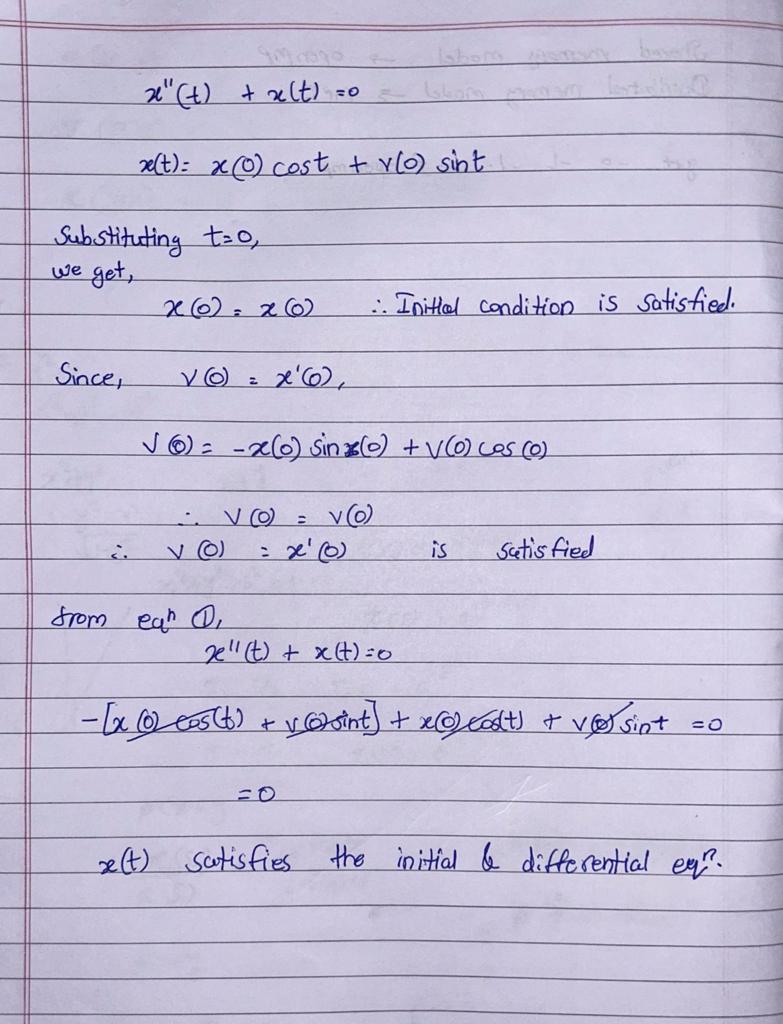 x"(t) + x(t) =0
x(t)= x(0) cost + v(0) sint
Substituting t=0,
we get,
x(0) = x(0) ∴ Initial condition is satisfied.
Since, v(0) = x'(0),
v(0) = -x(0) sin (0) + v(0) cos (0)
∴ v(0) = v(0)
∴ v(0) = x'(0) is satisfied
from eqn ①,
x"(t) + x(t) =0
-[x(0) cos(t) + v(0) sint] + x(0) cos(t) + v(0) sint =0
=0
x(t) satisfies the initial & differential eqn.